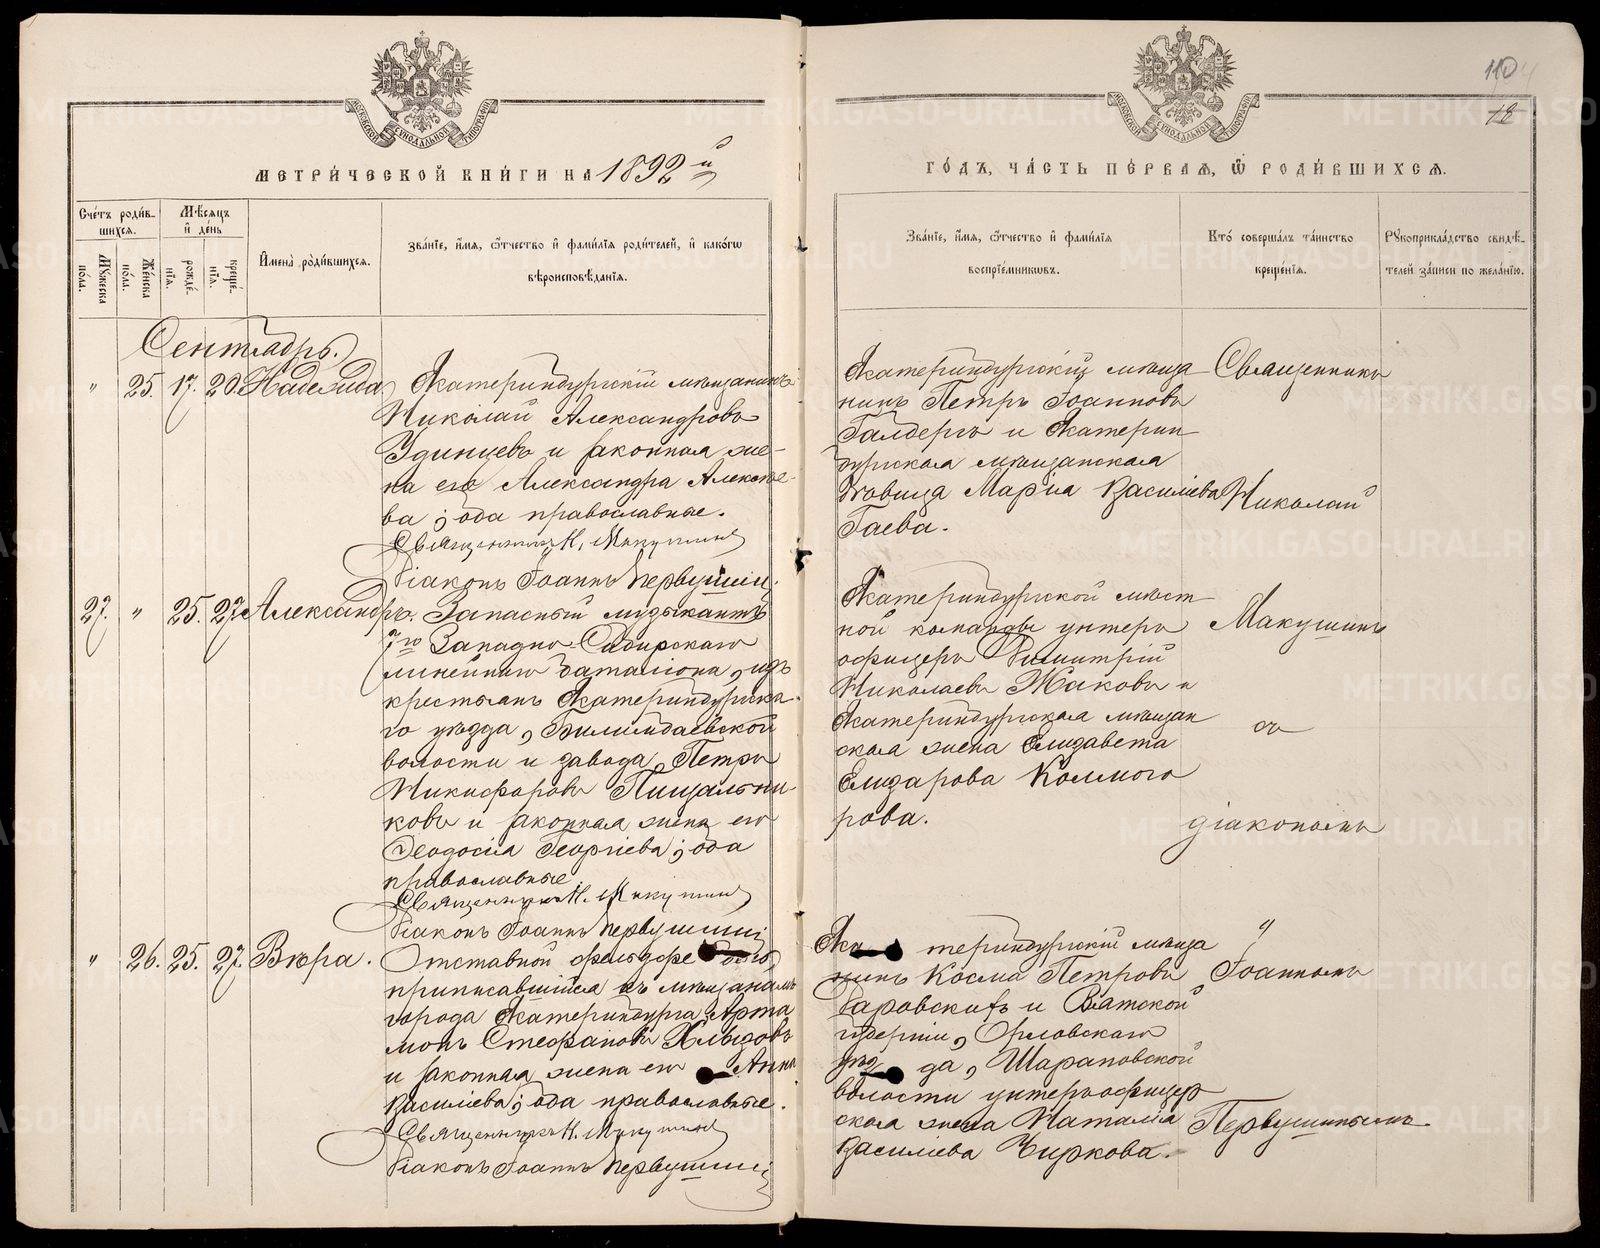 МОСКОВСКОЙ СУНОДАЛЬНОЙ ТИПОГРАФІИ
МЕТРИ́ЧЕСКОЙ КНИ́ГИ НА 1892й
Сче́тъ роди́вшихся.
Мѣ́сяцъ и де́нь
Му́жеска по́ла.
Же́нска по́ла.
рожде́нія.
креще́нія.
Имена̀ роди́вшихся.
Зва́ніе, и́мя, ѻ҆́тчество и фами́лія роди́телей, и како́гѡ
вѣроисповѣ́данія.
Сентябрь.
" 25. 17. 20. Надежда.
Екатеринбургскій мѣщанинъ
Николай Александровъ
Удинцевъ и законная же-
на его Александра Алексѣе-
ва; оба православные.
Священникъ Н. Макушинъ
Діаконъ Іоаннъ Первушинъ
27. " 25. 27. Александръ.
Запасный музыкантъ
7го Западно-Сибирскаго
линейнаго баталіона, изъ
крестьянъ Екатеринбургска-
го уѣзда, Билимбаевской
волости и завода, Петръ
Никифоровъ Пищальни-
ковъ и законная жена его
Ѳеодосія Георгіева; оба
православные.
Священникъ Н. Макушинъ
Діаконъ Іоаннъ Первушинъ
" 26. 25. 27. Вѣра.
Отставной фельдфе
приписавшійся къ мѣщанамъ
города Екатеринбурга, Арта
монъ Стефановъ Хлызовъ
и законная жена его Анна
Василіева; оба православные.
Священникъ Н. Макушинъ
Діаконъ Іоаннъ Первушинъ
110
12
МОСКОВСКОЙ СУНОДАЛЬНОЙ ТИПОГРАФІИ
ГО́ДЪ, ЧА́СТЬ ПЕ́РВАЯ, Ѿ РОДИ́ВШИХСЯ.
Зва́ніе, и́мя, ѻ҆́тчество и фами́лія
воспріе́мникѡвъ.
Кто́ соверша́лъ та́инство
креще́нія.
Рꙋкоприкла́дство свидѣ́-
телей за́писи по жела́нію.
Екатеринбургскій мѣща
нинъ Петръ Іоанновъ
Гальбергъ и Екатерин
бургская мѣщанская
дѣвица Марія Василіева
Гаева.
Екатеринбургской мѣст
ной команды унтеръ
офицеръ Димитрій
Николаевъ Жаковъ и
Екатеринбургская мѣщан
ская жена Елизавета
Елизарова Колмого
рова.
Ека теринбургскій мѣща
нинъ Косма Петровъ
Таровскихъ и Вятской
губерніи, Орловскаго
уѣз да, Шарановской
волости унтеръ-офицер
ская жена Наталія
Василіева Чиркова.
Священникъ
Николай
Макушинъ
съ
діакономъ
Іоанномъ
Первушинымъ
METRIKI.GASO-URAL.RU